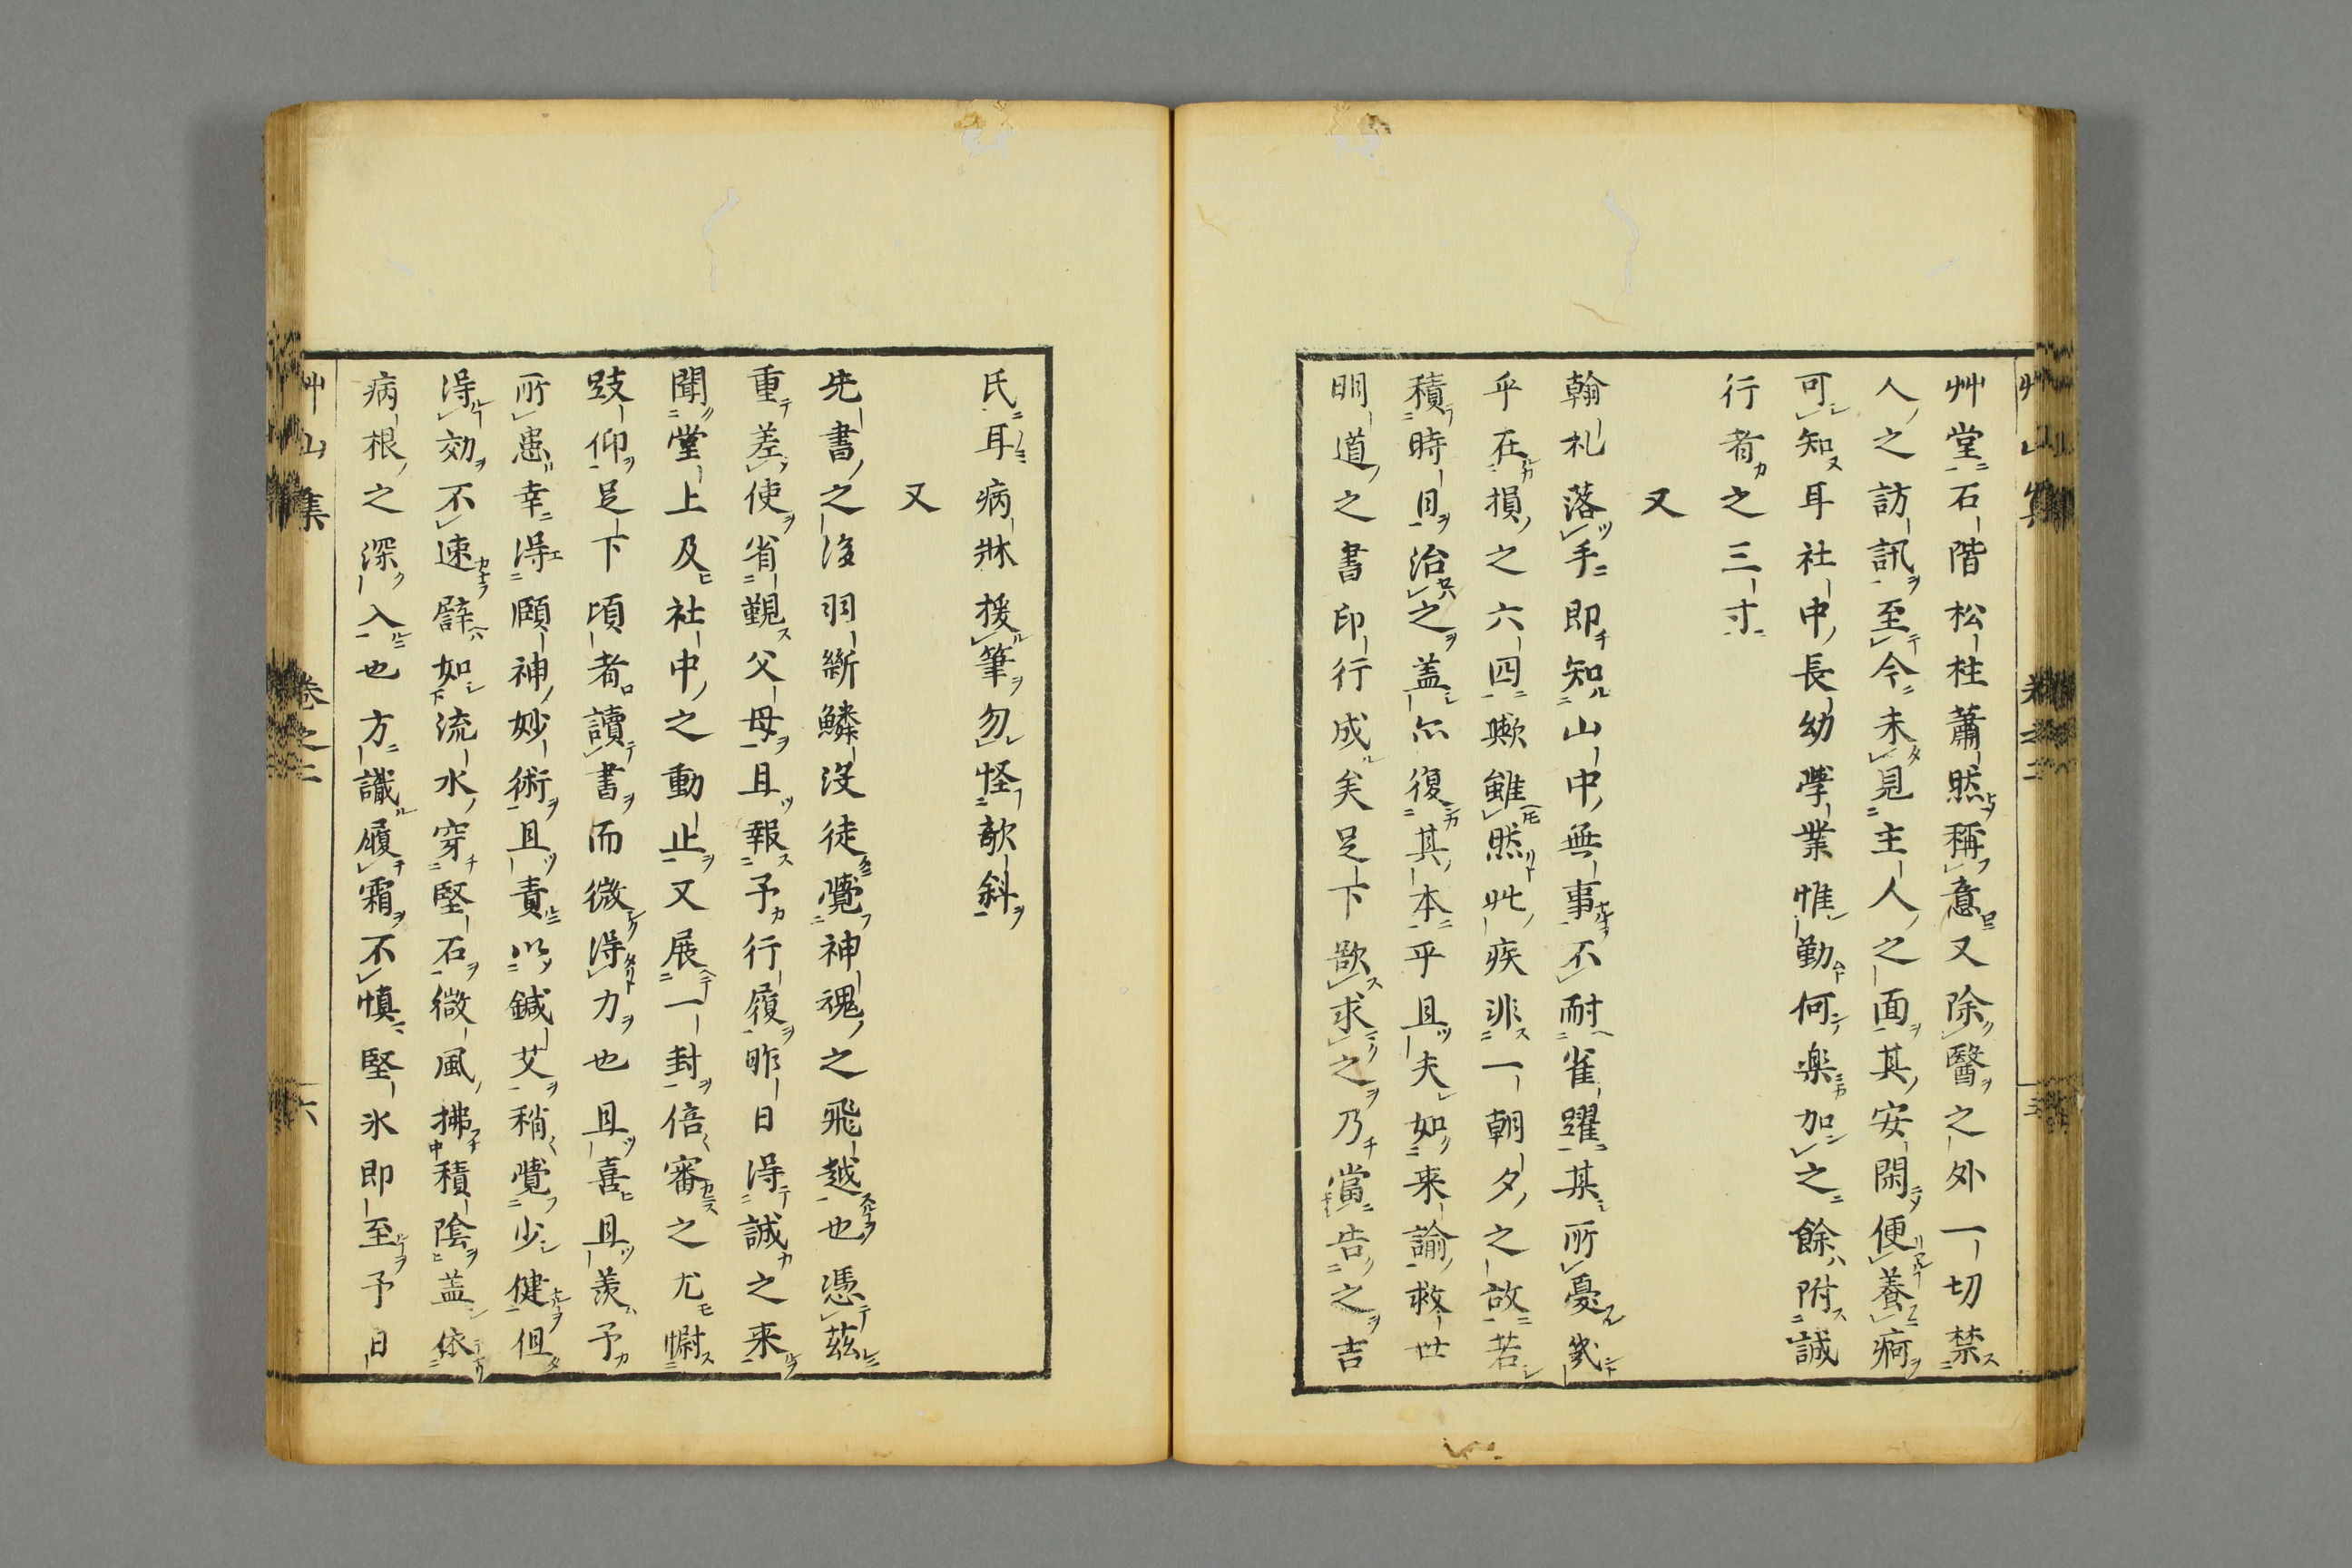 艸堂石階松柱蕭然稱意又除醫之外一切禁
人之訪訊至今未見主人之面其安閑便養痾
可知耳社中長幼學業惟勤何楽加之餘附誠
行者之三寸
又
翰札落手即知山中無事不耐雀躍某所憂幾
乎在損之六四歟雖然此疾非一朝夕之故若
積時月治之盖亦復其本乎且夫如来諭救世
明道之書印行成矣足下欲求之乃當告之吉
氏耳病牀援筆勿怪欹斜
又
先書之後羽斷鱗没徒覺神魂之飛越也憑茲
重差使省覲父母且報予行履昨日得誠之来
聞堂上及社中之動止又展一封倍審之尤慰
跂仰足下頃者讀書而微得力也且喜且羨予
所患幸得頤神妙術且責以鍼艾稍覺少健但
得効不速譬如流水穿堅石微風拂積陰盖依
病根之深入也方識履霜不慎堅氷即至予日
艸山集 卷之二 六